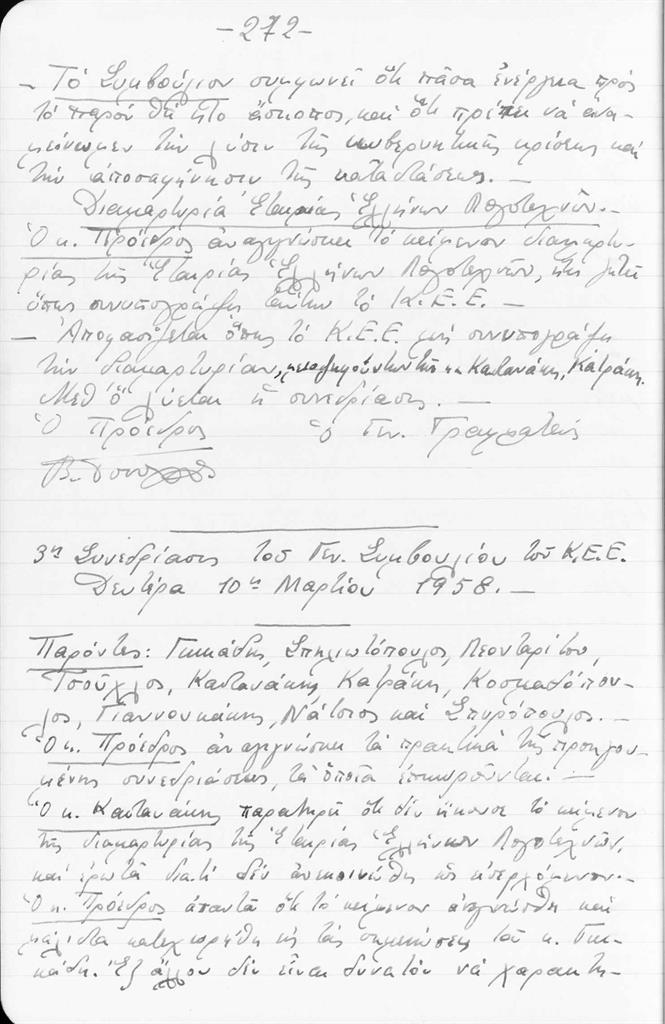 -272-
- Τό Συμβούλιον συμφωνεῖ ὅτι πᾶσα ἐνέργεια πρός
τό παρόν θά ἦτο ἄσκοπος, καί ὅτι πρέπει νά ἀνα-
μείνωμεν τήν λύσιν τῆς κυβερνητικῆς κρίσεως καί
τήν ἀποσαφήνησιν τῆς καταστάσεως. -
Διαμαρτυρία Ἑταιρίας Ἑλλήνων Λογοτεχνῶν. -
Ὁ κ. Πρόεδρος ἀναγιγνώσκει τό κείμενον διαμαρτυ-
ρίας τῆς Ἑταιρίας Ἑλλήνων Λογοτεχνῶν, ἥτις ζητεῖ
ὅπως συνυπογράψῃ ταύτην τό Κ.Ε.Ε. -
- Ἀποφασίζεται ὅπως τό Κ.Ε.Ε. μή συνυπογράψῃ
τήν διαμαρτυρίαν, μειοψηφούντων τῶν κ.κ. Καστανάκη, Κατράκη.
Μεθ' ὅ λύεται ἡ συνεδρίασις. -
Ὁ Πρόεδρος ὁ Γεν. Γραμματεύς
3η Συνεδρίασις τοῦ Γεν. Συμβουλίου τοῦ Κ.Ε.Ε.
Δευτέρα 10η Μαρτίου 1958. -
Παρόντες: Γκικάδης, Σπηλιωτόπουλος, Λεονταρίτου,
Τσοῦχλος, Καστανάκης, Κατράκης, Κοσμαδόπου-
λος, Γιαννουκάκης, Νάτσιος καί Σπυρόπουλος. -
Ὁ κ. Πρόεδρος ἀναγιγνώσκει τά πρακτικά τῆς προηγου-
μένης συνεδριάσεως, τά ὁποῖα ἐπικυροῦνται. -
Ὁ κ. Καστανάκης παρατηρεῖ ὅτι δέν ἤκουσε τό κείμενον
τῆς διαμαρτυρίας τῆς Ἑταιρίας Ἑλλήνων Λογοτεχνῶν,
καί ἐρωτᾶ διατί δέν ἀνεκοινώθη ὡς εἰσερχόμενον. -
Ὁ κ. Πρόεδρος ἀπαντᾶ ὅτι τό κείμενον ἀνεγνώσθη καί
μάλιστα κατεχωρήθη εἰς τάς σημειώσεις τοῦ κ. Γκι-
κάδη. Ἐξ ἄλλου δέν εἶναι δυνατόν νά χαρακτη-